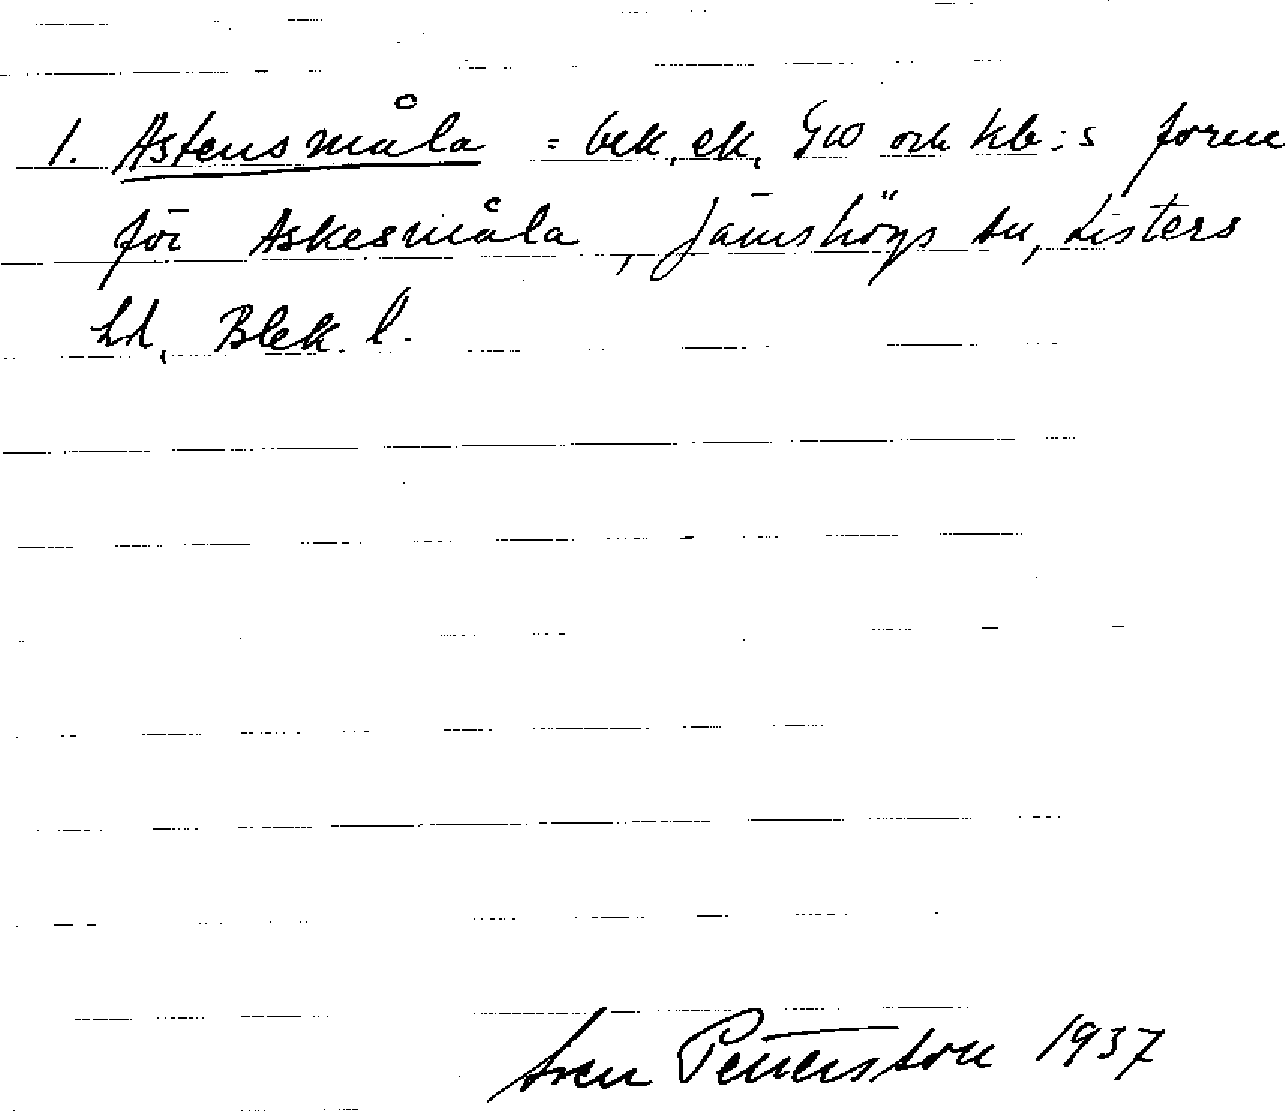 1. Astensmåla = bek, ek, GW och kb:s form
för Askesmåla, Jämshögs sn, Listers
hd, Blek. l.
Sven Pettersson 1937